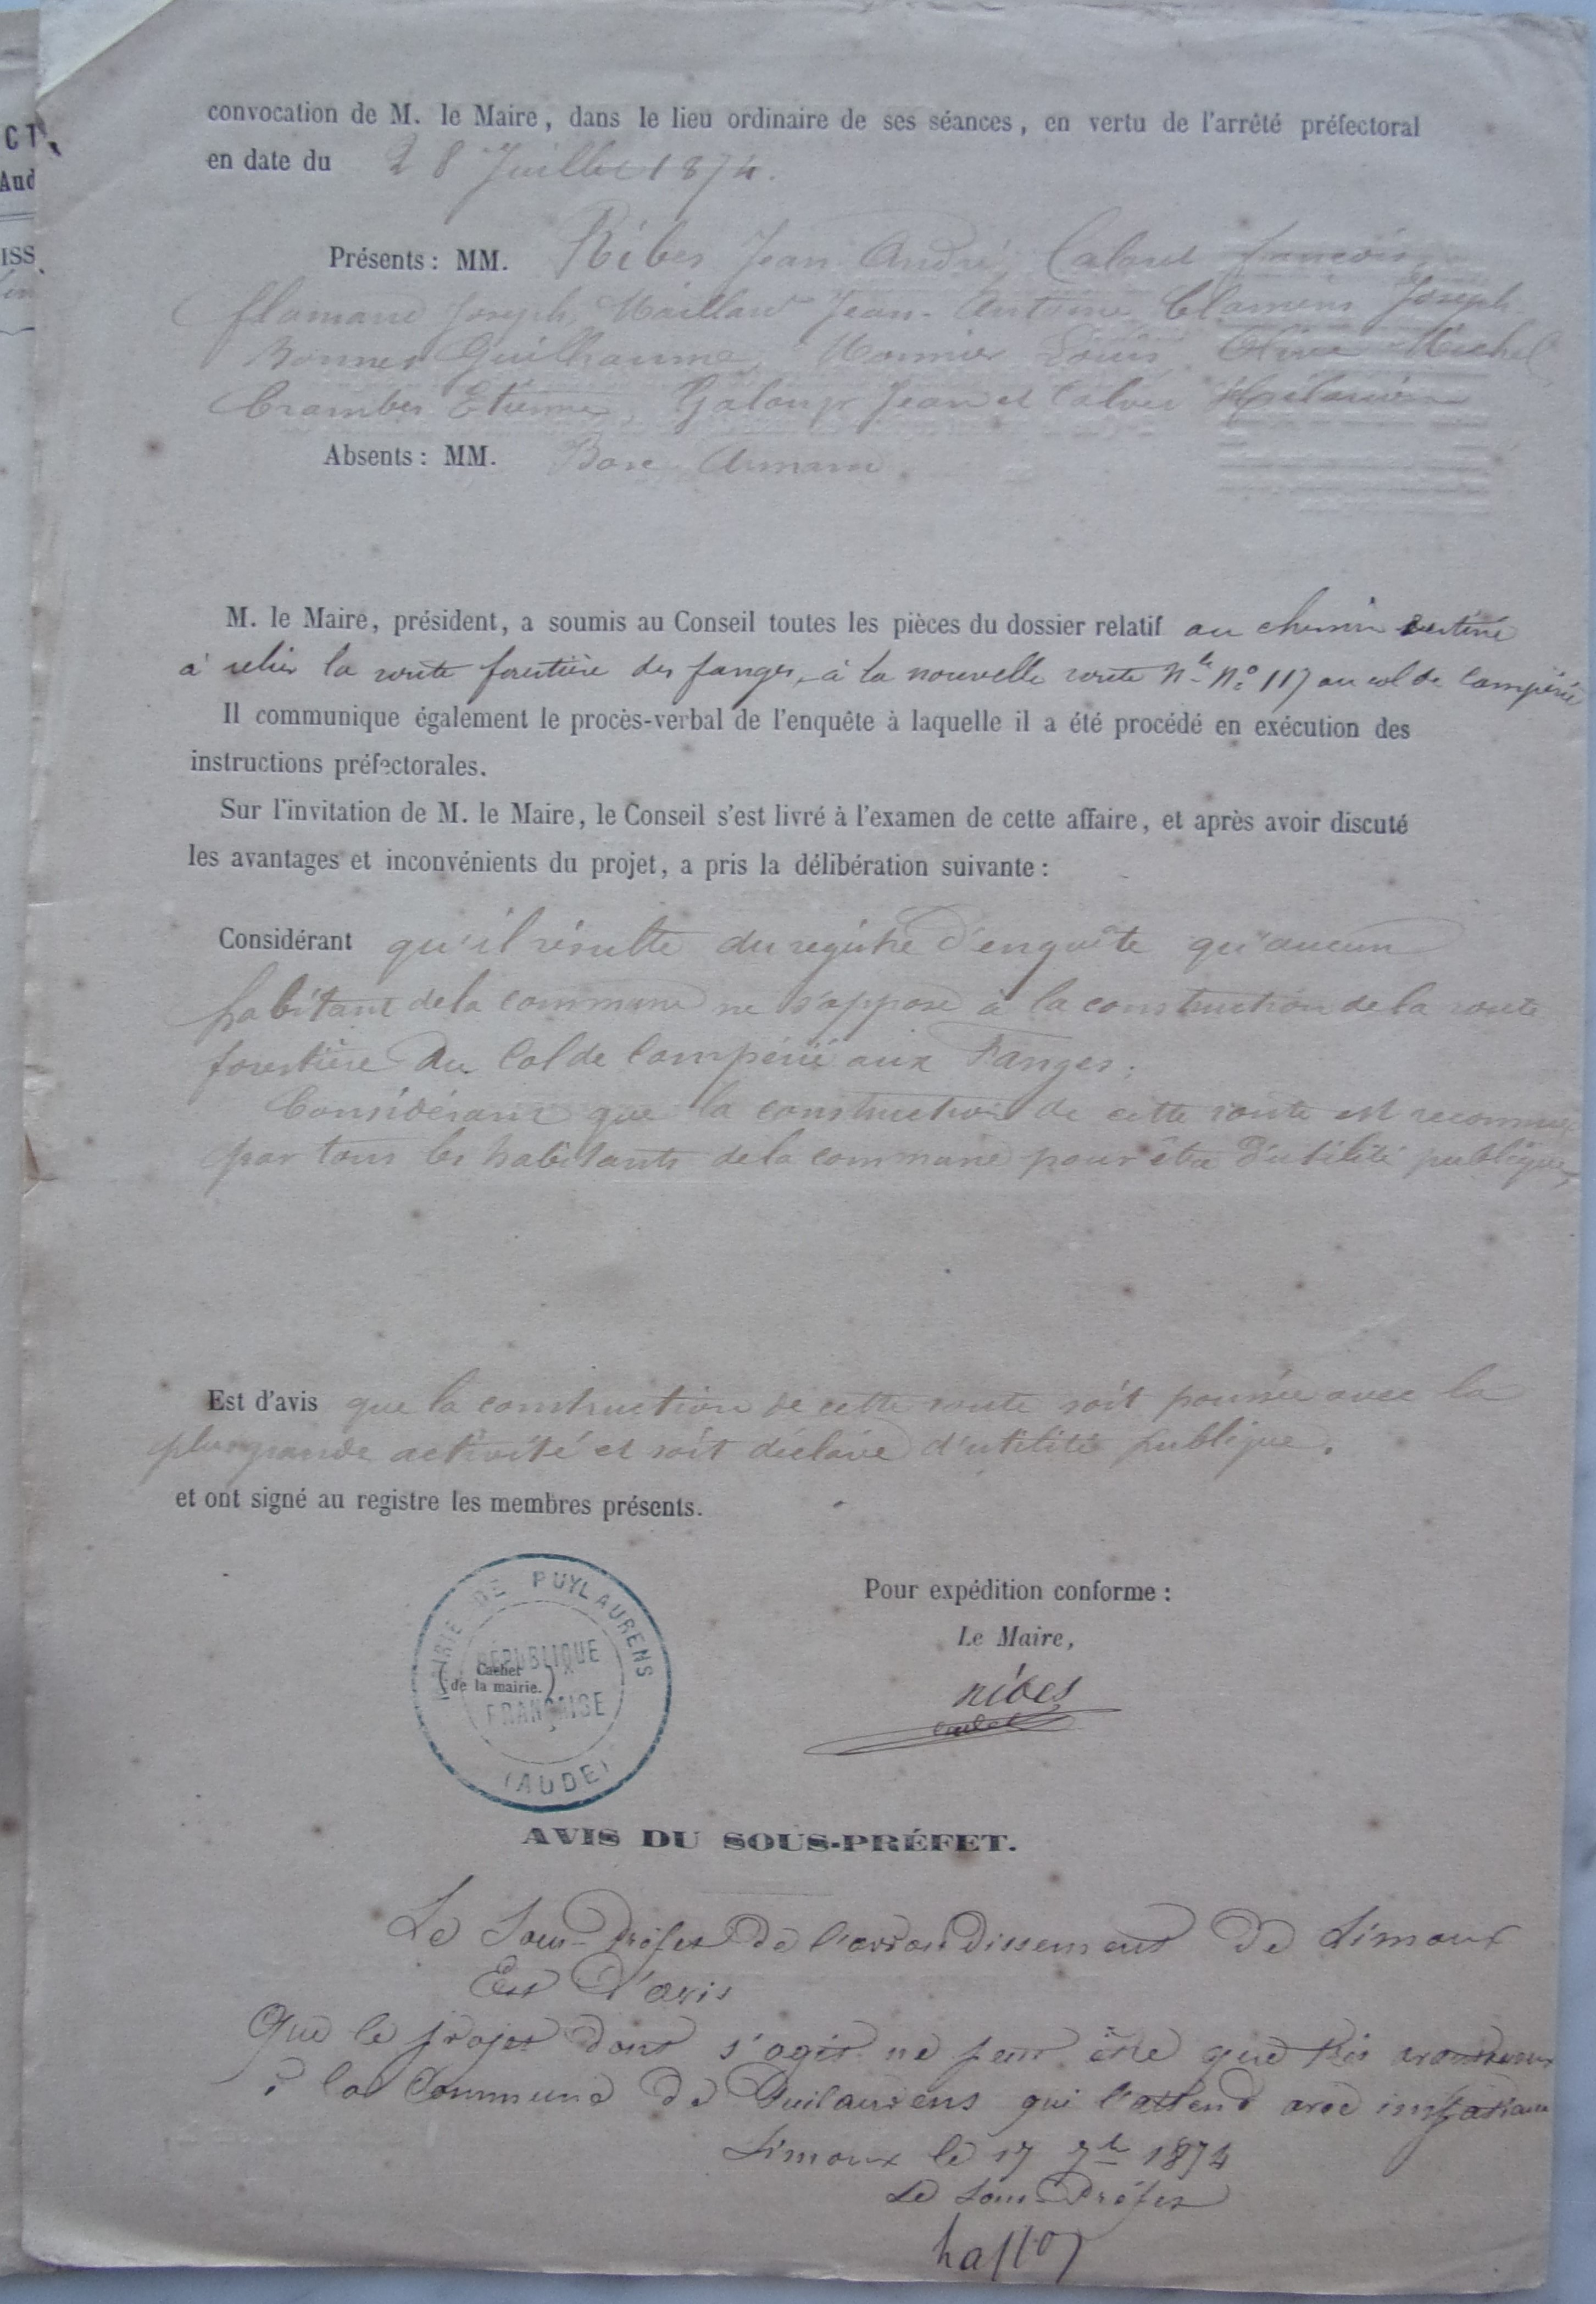 CT
Aud
ISS
convocation de M. le Maire, dans le lieu ordinaire de ses séances, en vertu de l'arrêté préfectoral
en date du 28 Juillet 1874.
Présents : MM. Ribes Jean André, Calvet françois,
flamand Joseph, Maillard Jean-Antoine, Clamens Joseph
Bonnet Guilhaume, Monnier Louis, Olive Michel
Crambes Etienne, Galoup Jean et Calvet
Absents : MM. Armand.
M. le Maire, président, a soumis au Conseil toutes les pièces du dossier relatif au chemin destiné
à relier la route forestière des fanges, à la nouvelle route Nle No 117 au col de Campérié
Il communique également le procès-verbal de l'enquête à laquelle il a été procédé en exécution des
instructions préfectorales.
Sur l'invitation de M. le Maire, le Conseil s'est livré à l'examen de cette affaire, et après avoir discuté
les avantages et inconvénients du projet, a pris la délibération suivante :
Considérant qu'il résulte du registre d'enquête qu'aucun
habitant de la commune ne s'oppose à la construction de la route
forestière du Col de Campérié aux Fanges;
Considérant que la construction de cette route est reconnue
par tous les habitants de la commune pour être d'utilité publique,
Est d'avis que la construction de cette route soit poussée avec la
plus grande activité et soit déclaré d'utilité publique.
et ont signé au registre les membres présents.
MAIRIE DE PUYLAURENS
RÉPUBLIQUE
FRANÇAISE
(AUDE)
( Cachet
de la mairie. )
Pour expédition conforme :
Le Maire,
Ribes
AVIS DU SOUS-PRÉFET.
Le Sous-Préfet de l'arrondissement de Limoux
Est d'avis
Que le projet dont s'agit ne peut être que très avantageux
à la Commune de Puilaurens qui l'attend avec impatience
Limoux le 17 7bre 1874
Le Sous-Préfet